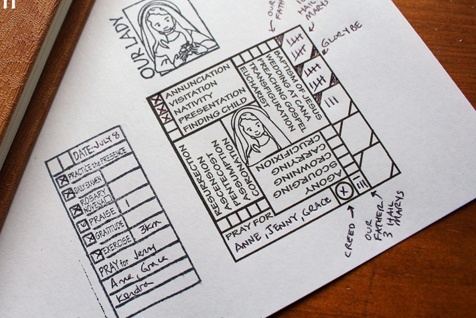 OUR LADY
OUR FATHER
MARYS
GLORY BE
ANNUNCIATION
VISITATION
NATIVITY
PRESENTATION
FINDING CHILD
BAPTISM OF JESUS
WEDDING AT CANA
PREACHING GOSPEL
TRANSFIGURATION
EUCHARIST
AGONY
SCOURGING
CROWNING
CARRYING
CRUCIFIXION
RESURRECTION
ASCENSION
PENTECOST
ASSUMPTION
CORONATION
PRAY FOR
ANNE, JENNY, GRACE
CREED
OUR FATHER
3 HAIL MARYS
DATE-JULY 8
PRACTICE the PRESENCE
DAILY EXAMEN
ROSARY
PRAISE 1
GRATITUDE
EXERCISE 3km
PRAY for Jenny
Anne, Grace
Kendra